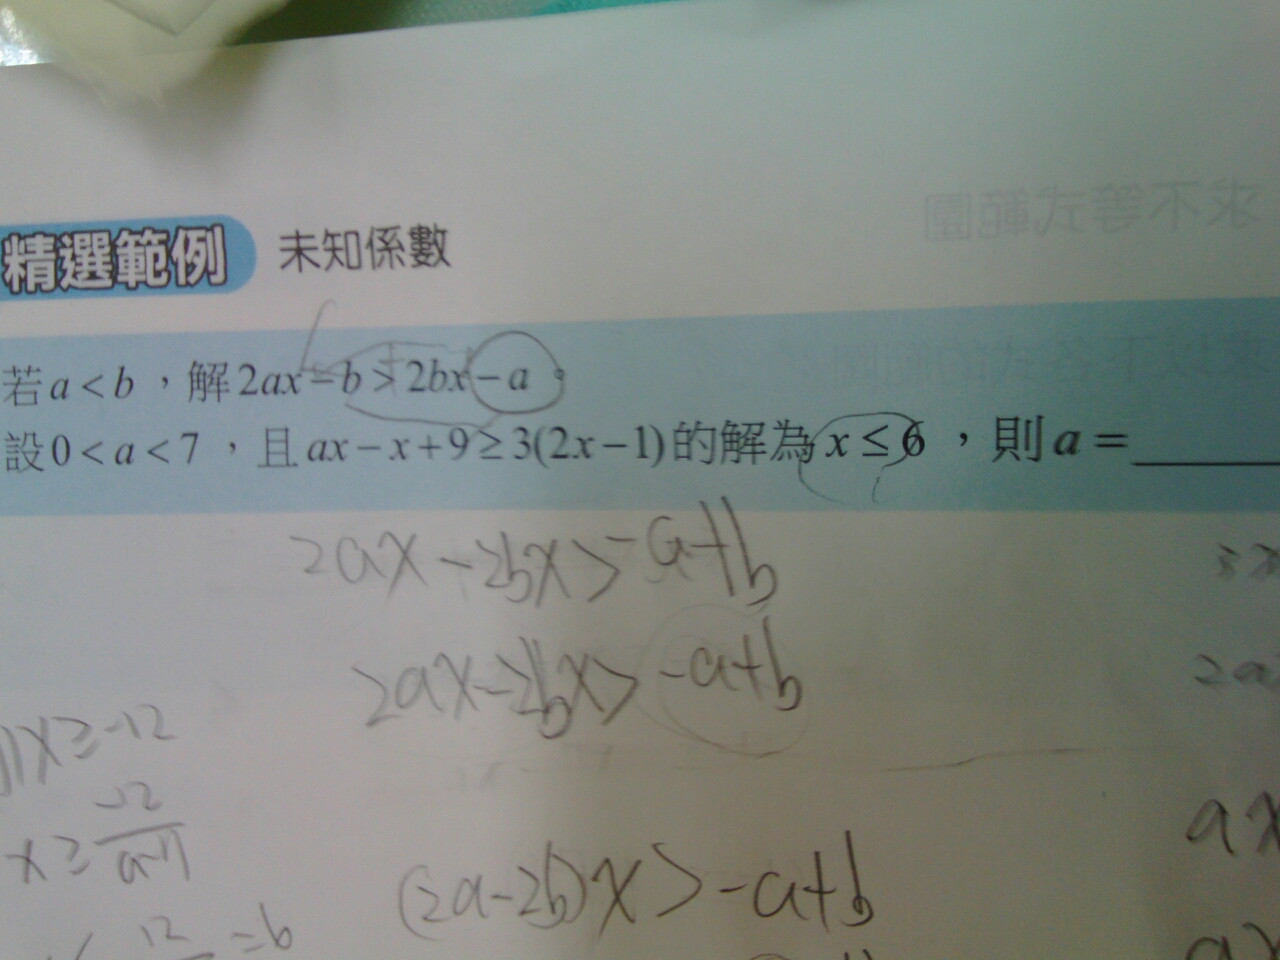 精選範例 未知係數
若a<b，解2ax-b>2bx-a。
設0<a<7，且ax-x+9≥3(2x-1)的解為x≤6，則a=
2ax-2bx>-a+b
2ax-2bx>-a+b
x≥-12
x≥-12/a-7
(2a-2b)x>-a+b
12
=6
2a
ax
ax